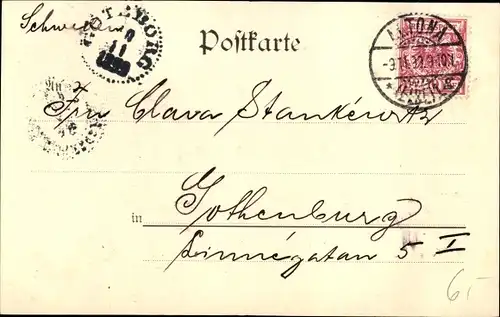 Schweden
GÖTEBORG
11
Postkarte
ALTONA
Frn Clara Stankewitz
in
Gothenburg
Linnégatan 5 I
6.-